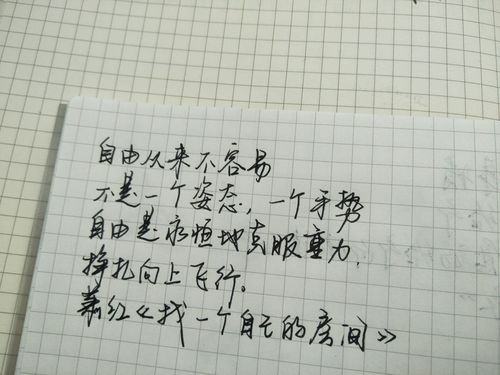 自由从来不容易
不是一个姿态，一个手势
自由是永恒地克服重力，
挣扎向上飞行。
萧红《找一个自己的房间》